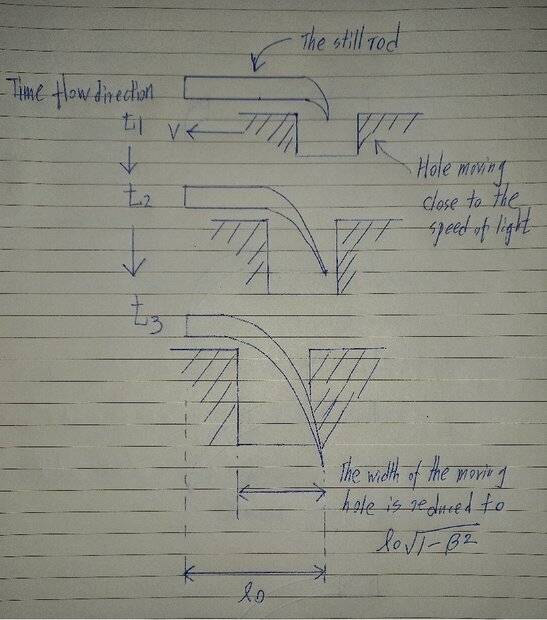 The still rod
Time flow direction
t1
V
Hole moving
close to the
speed of light
t2
t3
The width of the moving
hole is reduced to
l0√1-β2
l0